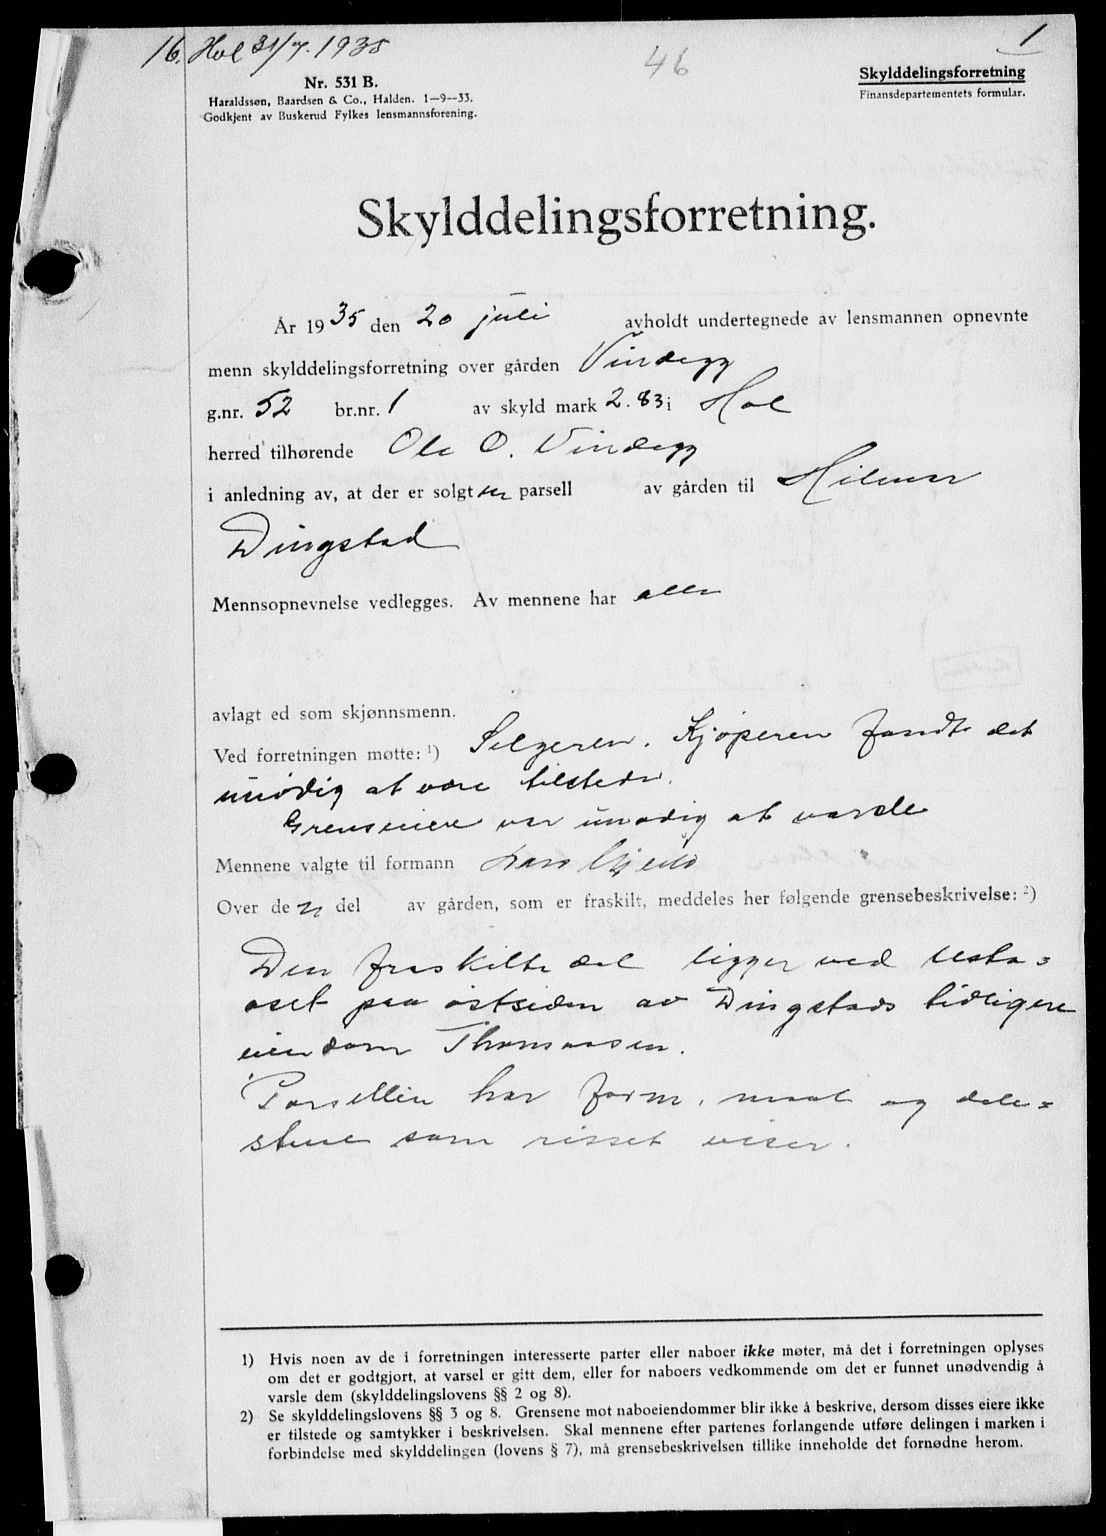 16. Hol 31/7. 1935
46
1
Nr. 531 B.
Haraldssøn, Baardsen & Co., Halden. 1—9—33.
Godkjent av Buskerud Fylkes lensmannsforening.
Skylddelingsforretning
Finansdepartementets formular.
Skylddelingsforretning.
År 1935 den 20 juli avholdt undertegnede av lensmannen opnevnte
menn skylddelingsforretning over gården Vindegg
g.nr. 52 br.nr. 1 av skyld mark 2.83 i Hol
herred tilhørende Ole O. Vindegg
i anledning av, at der er solgt en parsell av gården til Hilmar
Dingstad
Mennsopnevnelse vedlegges. Av mennene har alle
avlagt ed som skjønnsmenn.
Ved forretningen møtte: ¹) Selgeren. Kjøperen fandt det
unødig at være tilstede.
Grenseeiere var unødig at varsle
Mennene valgte til formann Lars
Over den del av gården, som er fraskilt, meddeles her følgende grensebeskrivelse: ²)
Den fraskilte del ligger ved Usta=
oset paa østsiden av Dingstads tidligere
eiendom Thomassen.
Parsellen har form, maal og dele=
stene som risset viser.
1) Hvis noen av de i forretningen interesserte parter eller naboer ikke møter, må det i forretningen oplyses
om det er godtgjort, at varsel er gitt dem, eller for naboers vedkommende om det er funnet unødvendig å
varsle dem (skylddelingslovens §§ 2 og 8).
2) Se skylddelingslovens §§ 3 og 8. Grensene mot naboeiendommer blir ikke å beskrive, dersom disses eiere ikke
er tilstede og samtykker i beskrivelsen. Skal mennene efter partenes forlangende utføre delingen i marken i
forbindelse med skylddelingen (lovens § 7), må grensebeskrivelsen tillike inneholde det fornødne herom.